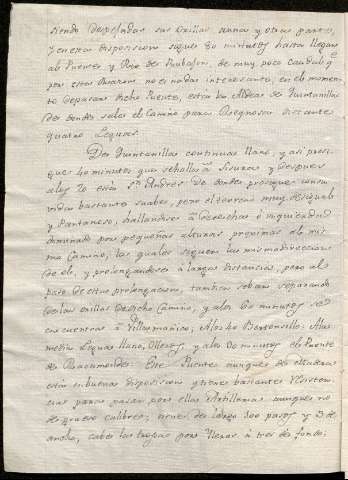 siendo despejadas sus orillas unas y otras partes,
y en esta disposicion sigue 80 minutos hasta llegar
al Puente y Rio de Rubagon, de muy poco caudal q
por estos Parages no es nada interesante, en el momen-
to de pasar dicho Puente, esta la Aldea de Quintanilla
de donde sale el Camino para Reynosa distante
quatro Leguas.
De Quintanilla continua llano, y asi prosi-
gue 40 minutos que se halla á Cisura y despues
alos 20 esta Sn Andres de donde prosigue
bastante suabe, pero el terreno muy desigual
y Pantanoso, hallandose á derecha é izquierda
dominado por pequeñas alturas proximas al mis-
mo Camino, las quales siguen la misma direccion
de el, y prolongandose á largas distancias, pero al
paso de estas prolongaciones, tambien se ban separando
de las orillas de dicho Camino, y alos 80 minutos se
encuentra á Villamañica, Alos 40 Berzosilla; A la
media Legua llano, Olleros, y alos 80 minutos el Puente
de Este Puente aunque de Madera
está en buena disposicion y tiene bastante Resisten-
cia para pasar por ella Artilleria aunque no
de grueso calibre; tiene de largo 300 pasos y 3 de
ancho, caben las tropas para llenar á tres de fondo;